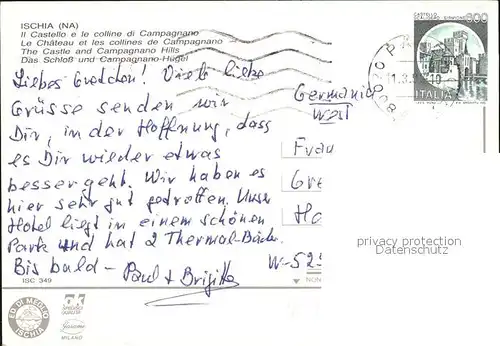 ISCHIA (NA)
Il Castello e le colline di Campagnano
Le Château et les collines de Campagnano
The Castle and Campagnano Hills
Das Schloß und Campagnano-Hügel
Liebes Gretchen! Viele liebe
Grüsse senden wir
Dir, in der Hoffnung, dass
es Dir wieder etwas
besser geht. Wir haben es
hier sehr gut getroffen. Unser
Hotel liegt in einem schönen
Park und hat 2 Thermal-Bäder.
Bis bald - Paul + Brigitte
ISC 349
ED. DI MEGLIO
ISCHIA
MILANO
Germania
West
Frau
Gre
Ha
W-525
NON
privacy protection
Datenschutz
ITALIA
11.3.